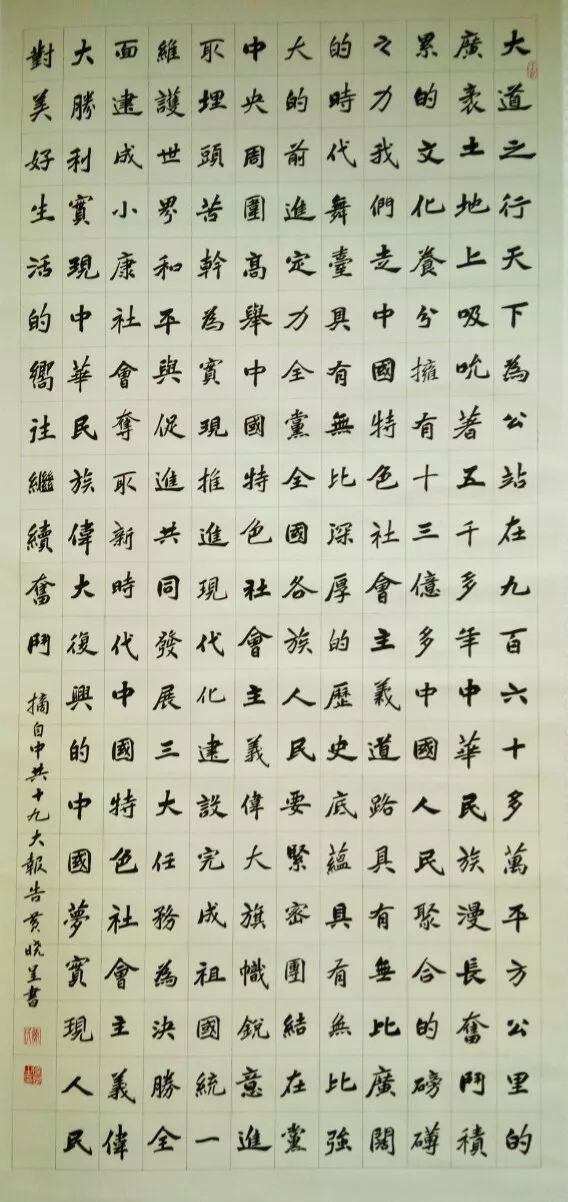 大道之行天下為公站在九百六十多萬平方公里的
廣袤土地上吸吮著五千多年中華民族漫長奮鬥積
累的文化養分擁有十三億多中國人民聚合的磅礴
之力我們走中國特色社會主義道路具有無比廣闊
的時代舞臺具有無比深厚的歷史底蘊具有無比強
大的前進定力全黨全國各族人民要緊密團結在黨
中央周圍高舉中國特色社會主義偉大旗幟銳意進
取埋頭苦幹為實現推進現代化建設完成祖國統一
維護世界和平與促進共同發展三大任務為決勝全
面建成小康社會奪取新時代中國特色社會主義偉
大勝利實現中華民族偉大復興的中國夢實現人民
對美好生活的嚮往繼續奮鬥 摘自中共十九大報告黄晓書